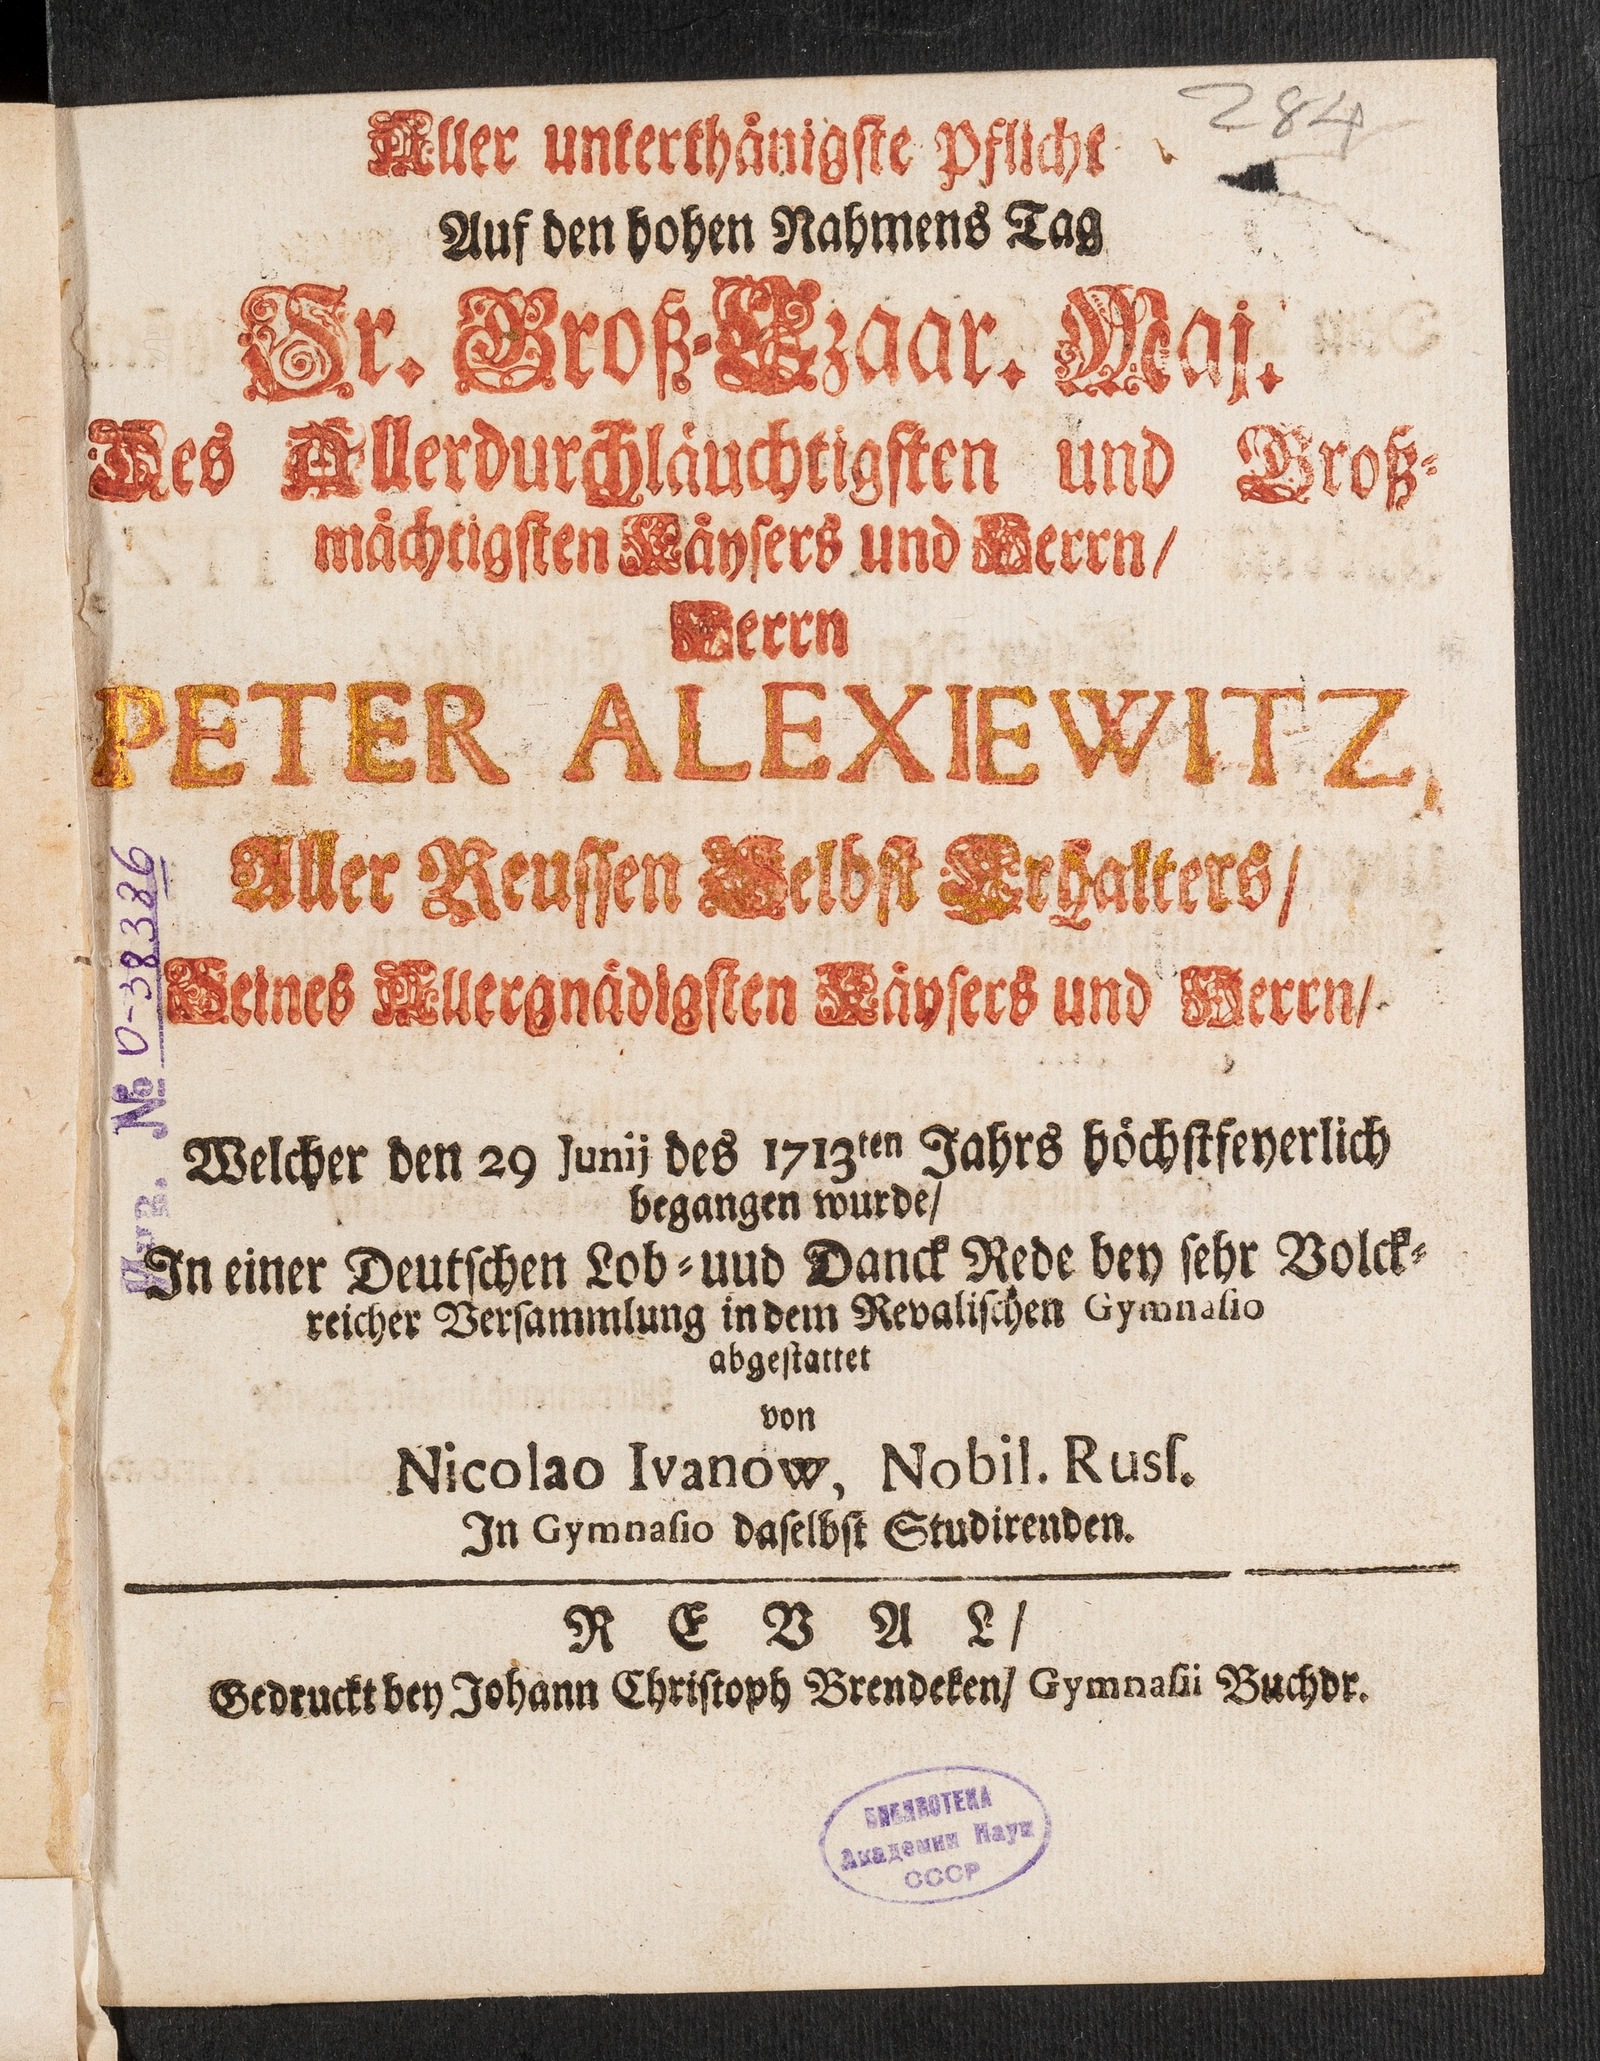 284
Aller unterthånigste Pflicht
Auf den hohen Nahmens Tag
Sr. Groß-Czaar. Maj.
Des Allerdurchläuchtigsten und Groß-
mächtigsten Käysers und Herrn/
Herrn
PETER ALEXIEWITZ,
Aller Reussen Selbst Erhalters/
Seines Allergnädigsten Käysers und Herrn/
Welcher den 29 Junij des 1713ten Jahrs höchstfeyerlich
begangen wurde/
In einer Deutschen Lob-uud Danck Rede bey sehr Volck-
reicher Versammlung in dem Revalischen Gymnasio
abgestattet
von
Nicolao Ivanow, Nobil. Rusſ.
In Gymnasio daselbst Studirenden.
REVAL/
Gedruckt bey Johann Christoph Brendeken/ Gymnasii Buchdr.
БИБЛИОТЕКА
Академии Наук
СССР
№ 0-38386